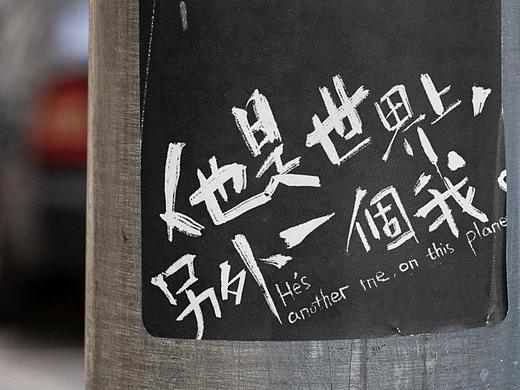 他是世界上,
另外一個我。
He's
another me, on this plane